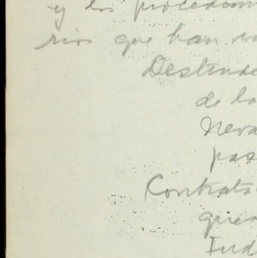 y los procedim
rios que han
Destinda
de la
Neva
pas
Contrata
que
Ind